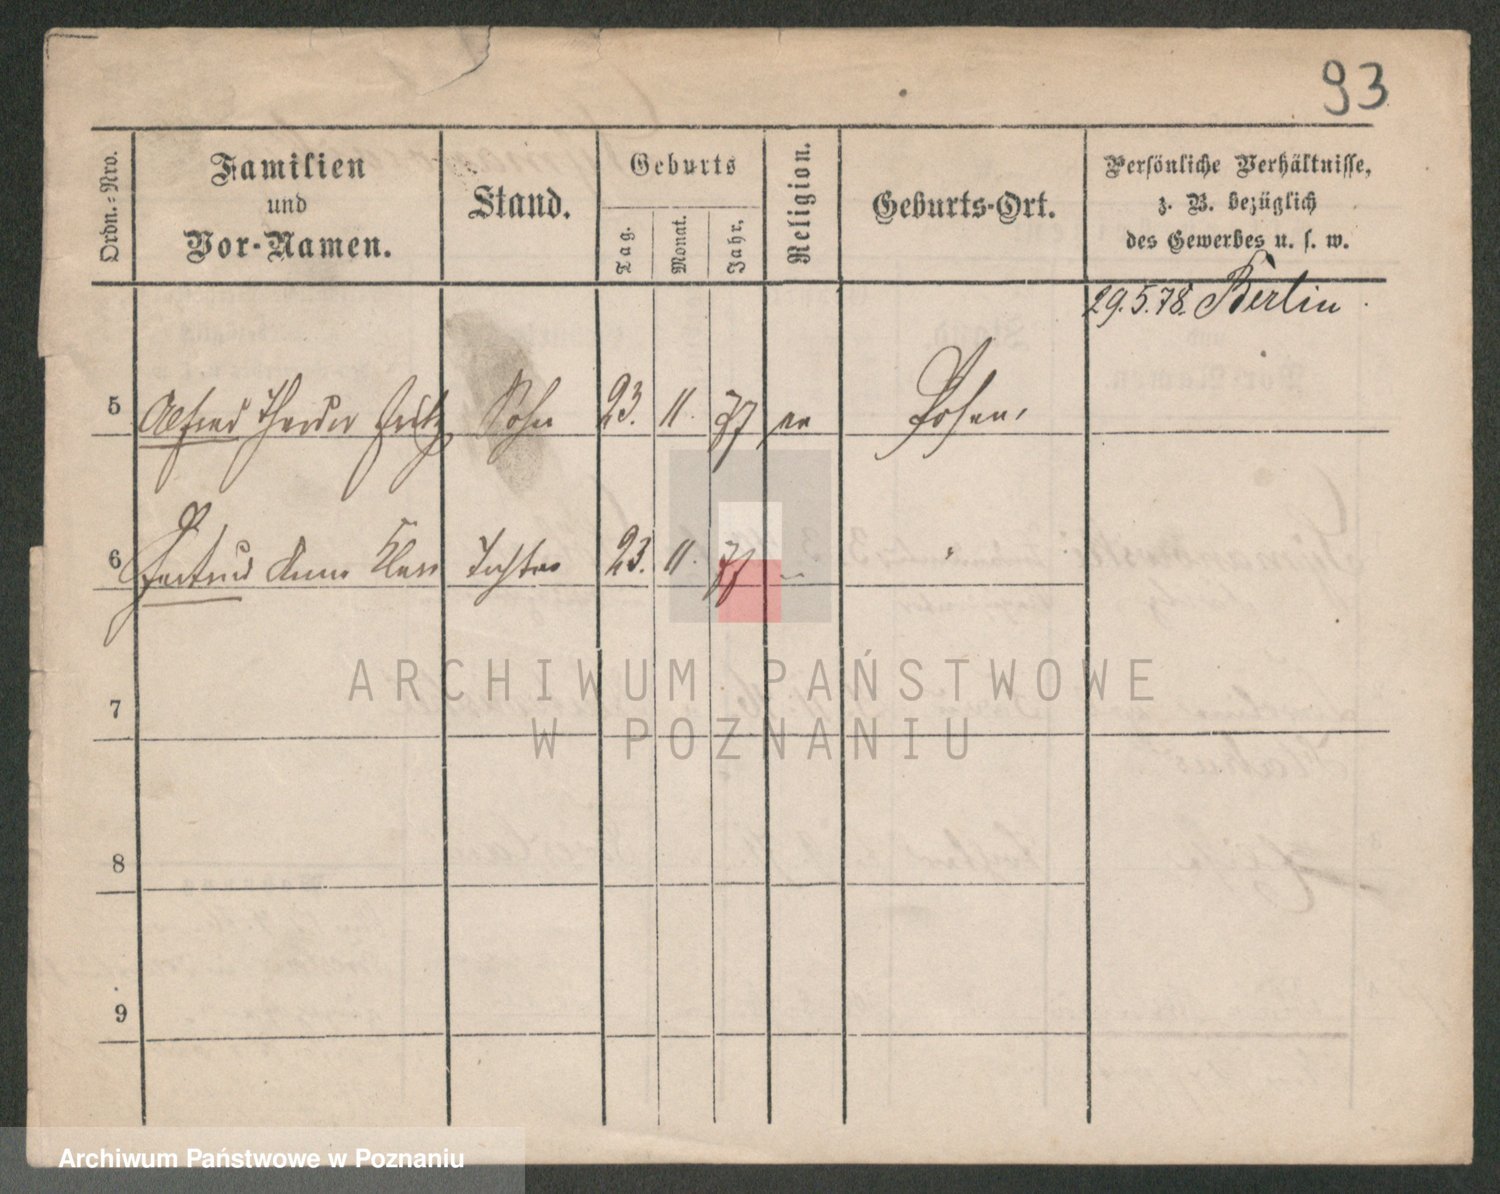 93
Ordn.-Nro. Familien und Vor-Namen. Stand. Geburts Tag. Monat. Jahr. Religion. Geburts-Ort. Persönliche Verhältnisse, z. B. bezüglich des Gewerbes u. s. w.
29.5.78. Berlin
5 Alfred Theodor Fritz Sohn 23. 11. 77 ev Posen.
6 Gertrud Anna Klara Tochter 23. 11. 77 "
7
8
9
ARCHIWUM PAŃSTWOWE
W POZNANIU
Archiwum Państwowe w Poznaniu